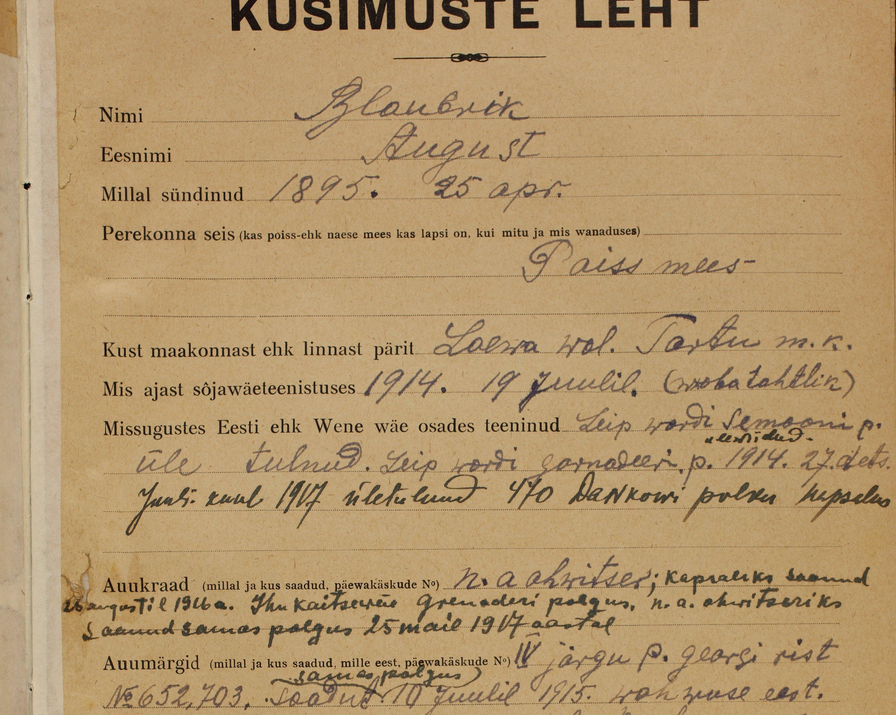 KÜSIMUSTE LEHT
Nimi Blaubrik
Eesnimi August
Millal sündinud 1895. 25 apr.
Perekonna seis (kas poiss-ehk naese mees kas lapsi on, kui mitu ja mis wanaduses)
Poiss mees
Kust maakonnast ehk linnast pärit Laewa wal. Tartu m.k.
Mis ajast sôjawäeteenistuses 1914. 19 Juulil. (wabatahtlik)
Missugustes Eesti ehk Wene wäe osades teeninud Leip wardi Semooni p.
üle tulnud. Leip wardi p. 1914. 27. dets.
Juuli kuul 1917 ületulnud 470 Dankowi polku
Auukraad (millal ja kus saadud, päewakäskude No) n. a ohwitser; kapraliks saanud
26 augustil 1916 a. Ihu kaitsewäe Grenaderi polgus, n. a. ohwitseriks
Saanud samas polgus 25 mail 1917 aastal
Auumärgid (millal ja kus saadud, mille eest, päewakäskude No) IV järgu p. georgi rist
samas polgus
No 652,703. Saadud 10 Juulil 1915. wahwuse eest.